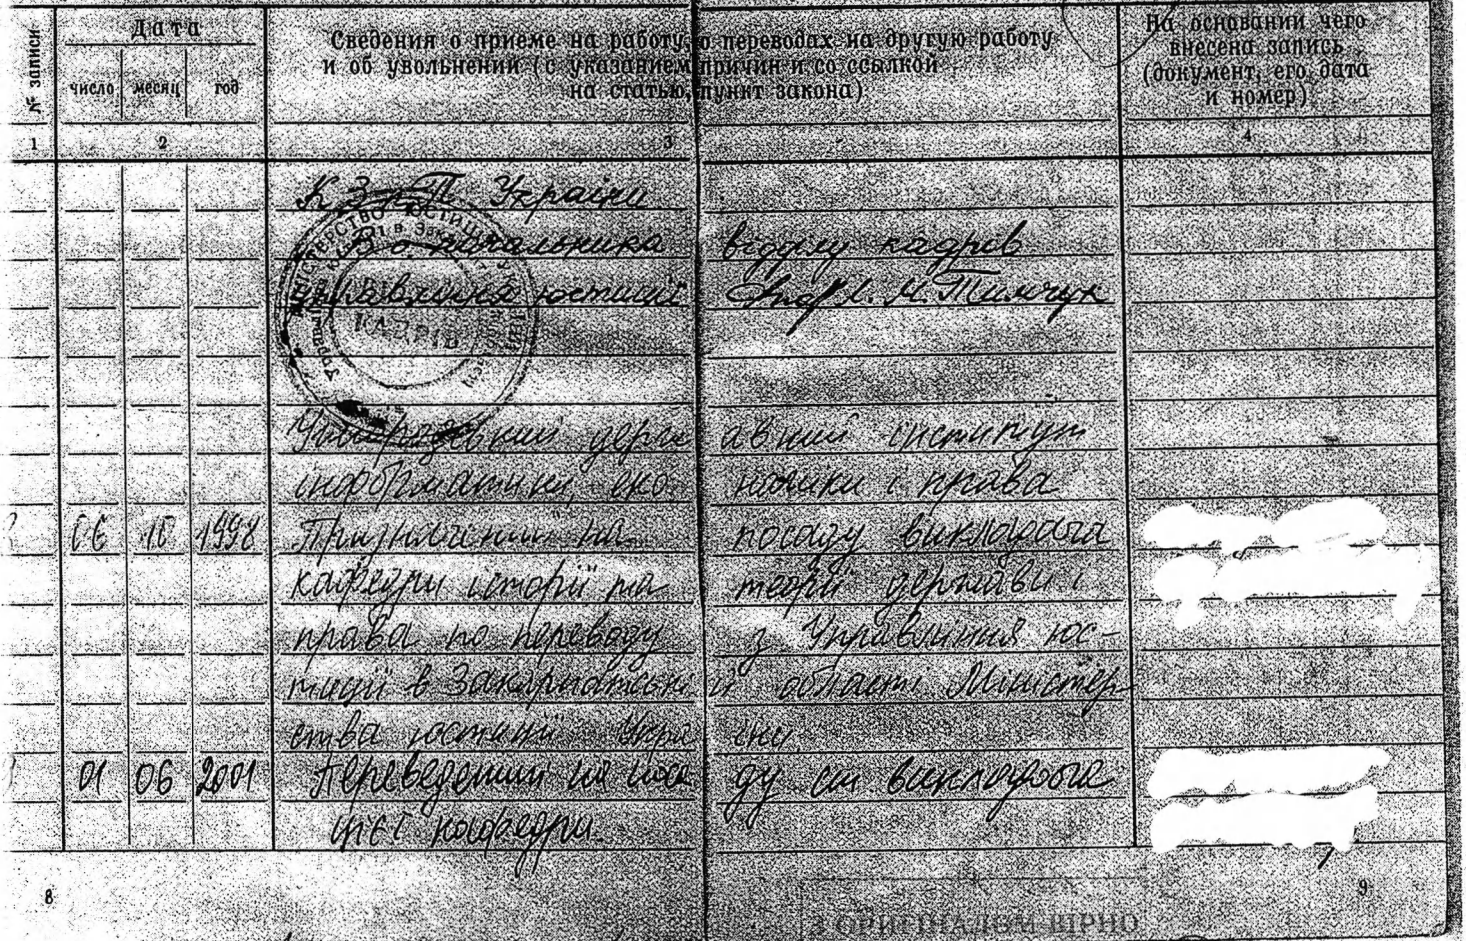 № записи
Дата
число месяц год
Сведения о приеме на работу, о переводах на другую работу
и об увольнении (с указанием причин и со ссылкой
на статью, пункт закона)
На основании чего
внесена запись
(документ, его дата
и номер)
1 2 3 4
КЗпП України
В о начальника відділу кадрів
Управління юстиції Л. М. Тимчук
КАДРІВ
Ужгородський державний інститут
інформатики, економіки і права
06 10 1998 Призначений на посаду викладача
кафедри історії та теорії держави і
права по переводу з Управління юс-
тиції в Закарпатській області Міністер
ства юстиції України.
01 06 2001 Переведений на посаду ст викладача
цієї кафедри.
8
9
З ОРИГІНАЛОМ ВІРНО